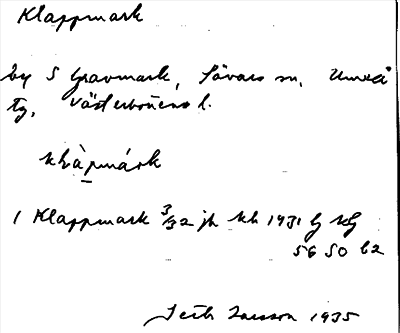 Klappmark
by S Gravmark, Sävars sn, Umeå
tg, Västerbottens l.
1 Klappmark 3/32 jb kb 1931 bj
56 50 62
Seth Larsson 1935